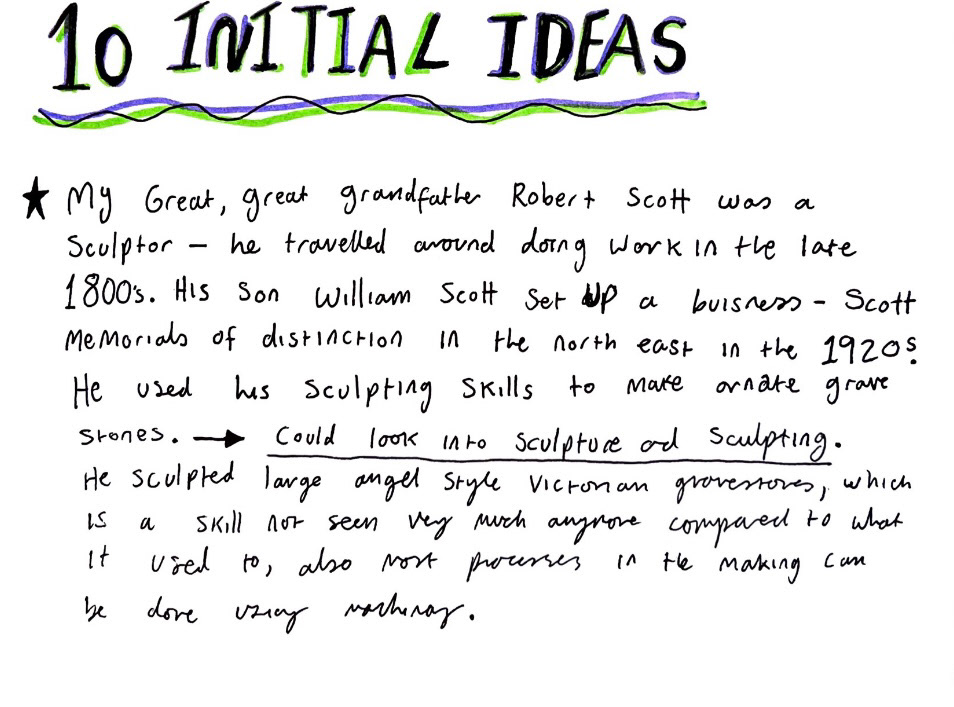 10 INITIAL IDEAS
★ My Great, great grandfather Robert Scott was a
Sculptor – he travelled around doing work in the late
1800's. His Son William Scott Set UP a buisness – Scott
Memorials of distinction in the north east in the 1920s.
He used his sculpting skills to make ornate grave
stones. → Could look into sculpture and sculpting.
He sculpted large angel style Victorian gravestones, which
is a skill not seen very much anymore compared to what
it used to, also most processes in the making can
be done using machinary.